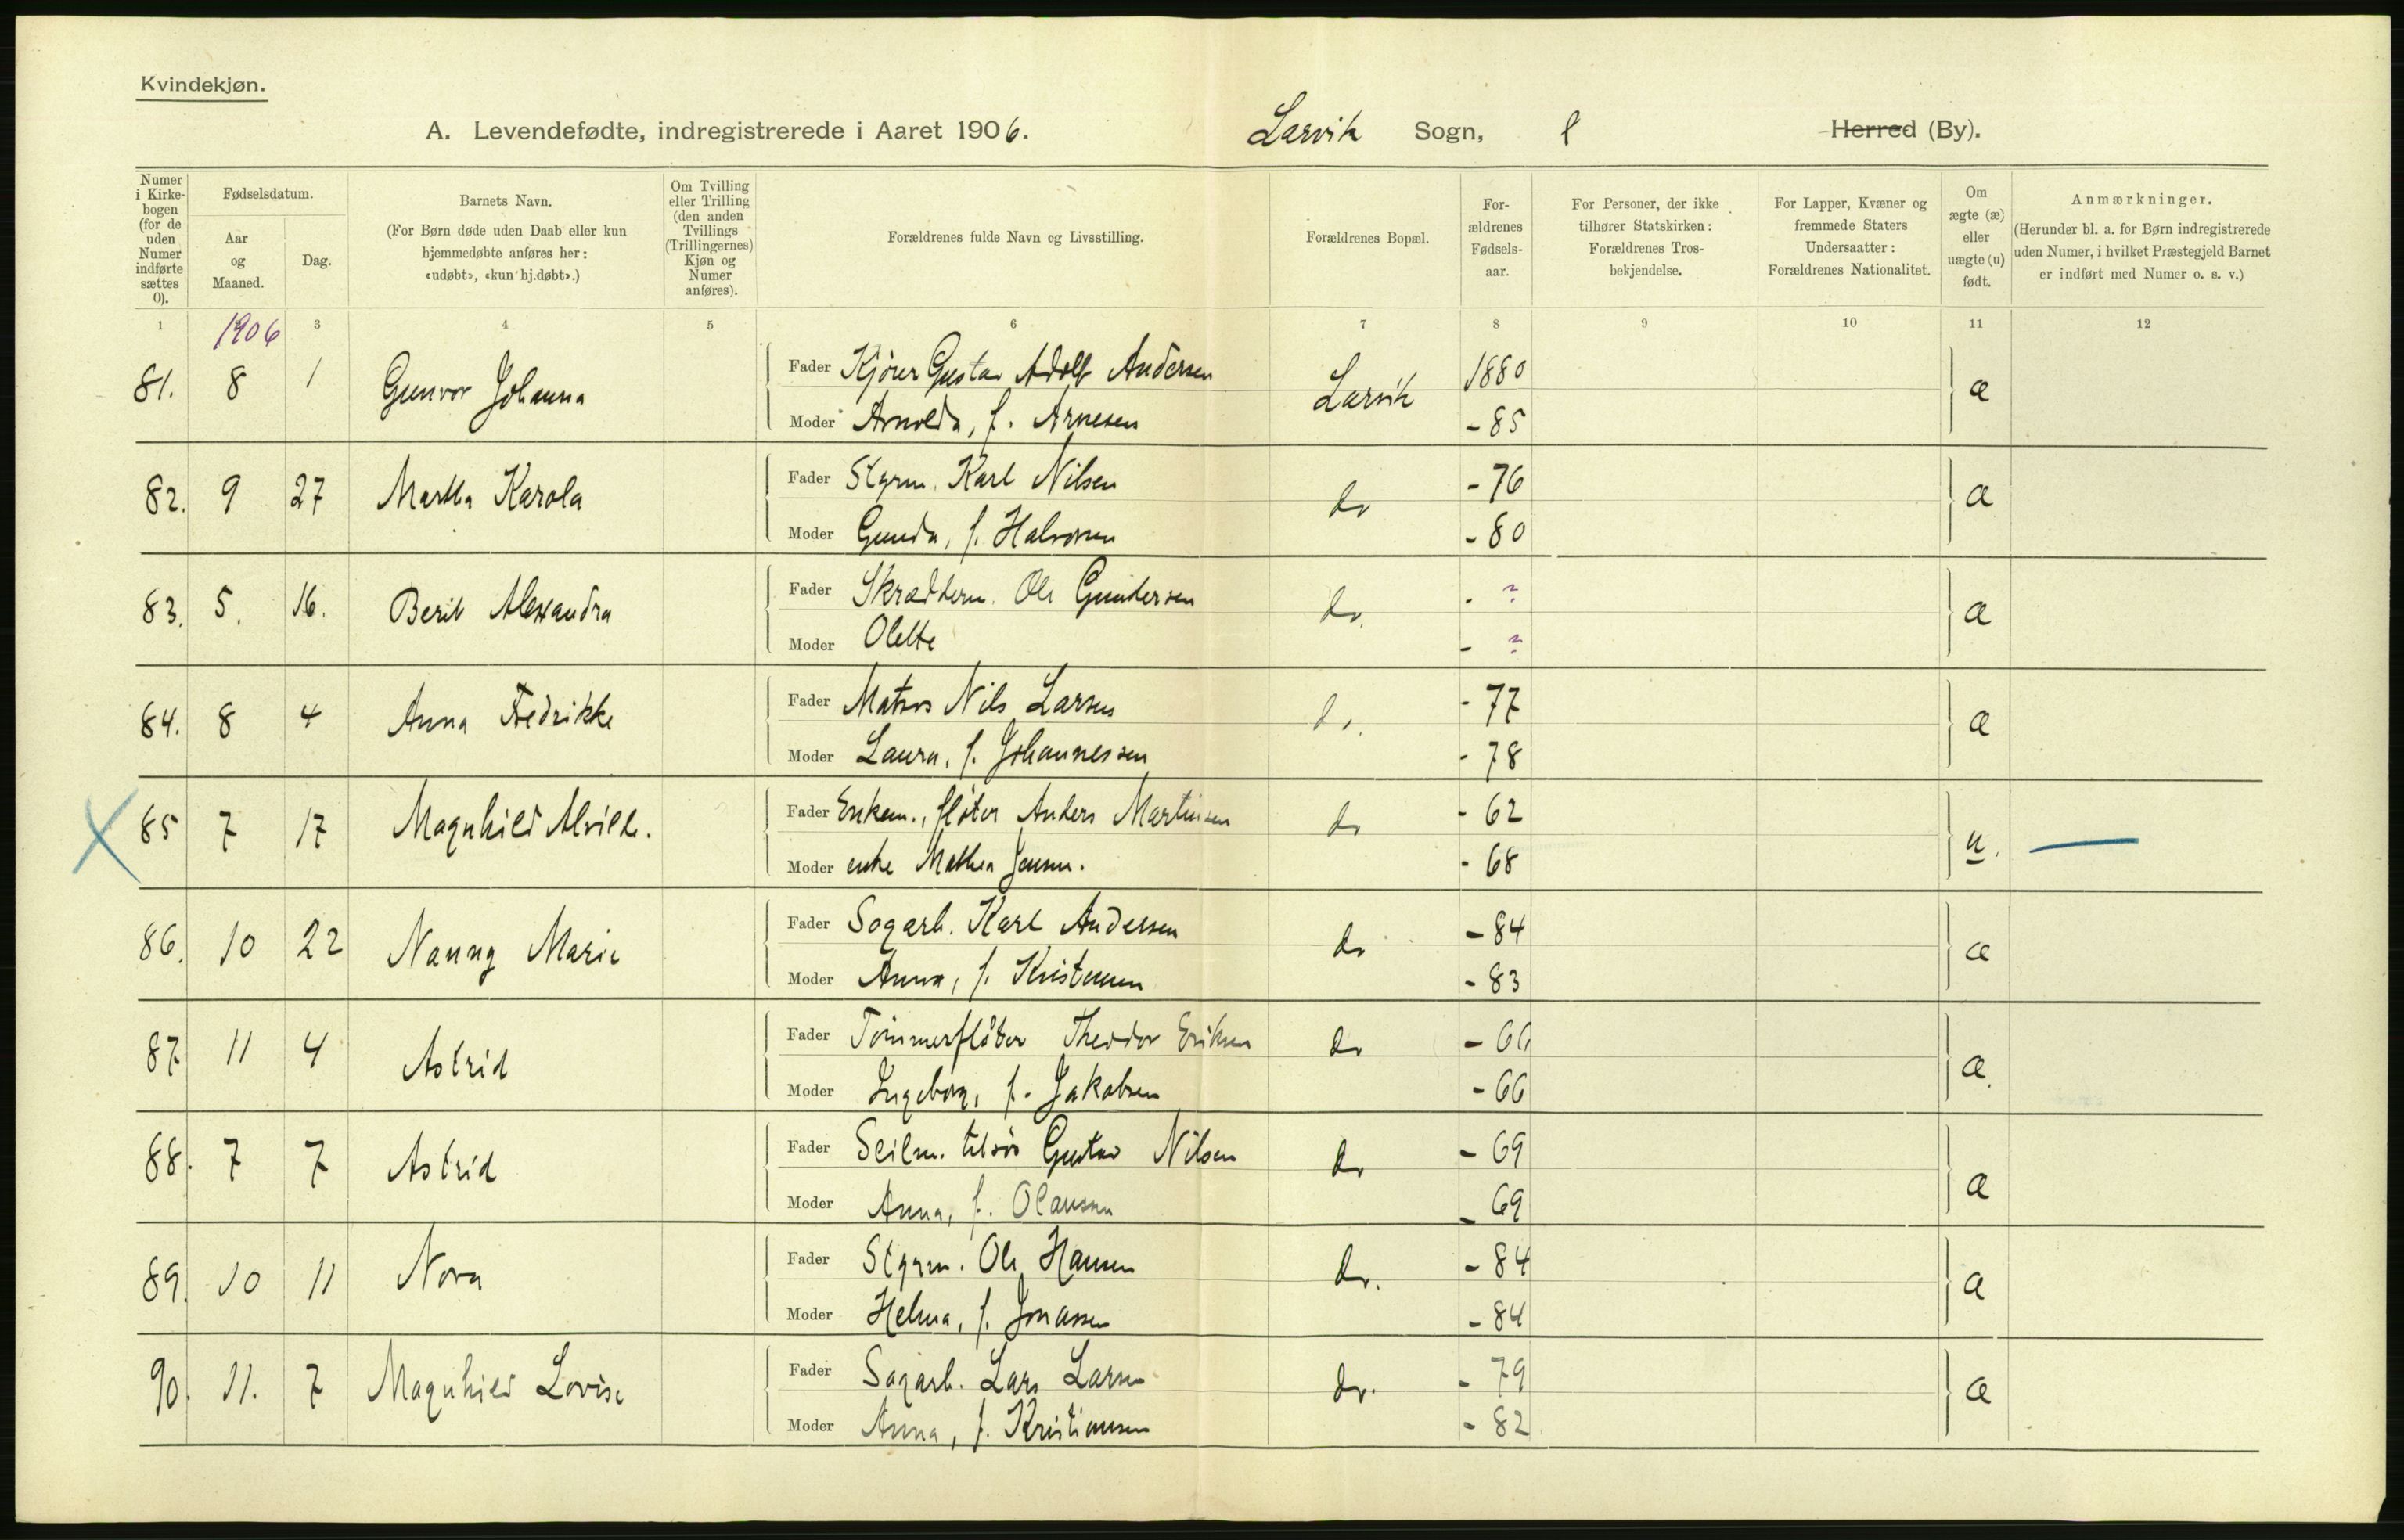 Kvindekjøn.
A. Levendefødte, indregistrerede i Aaret 1906. Larvik Sogn, Herred (By).
Numer i Kirkebogen (for de uden Numer indførte sættes 0).
Fødselsdatum.
Aar og Maaned.
Dag.
Barnets Navn.
(For Børn døde uden Daab eller kun hjemmedøbte anføres her: «udøbt», «kun hj.døbt».)
Om Tvilling eller Trilling (den anden Tvillings (Trillingernes) Kjøn og Numer anføres).
Forældrenes fulde Navn og Livsstilling.
Forældrenes Bopæl.
Forældrenes Fødselsaar.
For Personer, der ikke tilhører Statskirken: Forældrenes Trosbekjendelse.
For Lapper, Kvæner og fremmede Staters Undersaatter: Forældrenes Nationalitet.
Om ægte (æ) eller uægte (u) født.
Anmærkninger.
(Herunder bl. a. for Børn indregistrerede uden Numer, i hvilket Præstegjeld Barnet er indført med Numer o. s. v.)
1 3 4 5 6 7 8 9 10 11 12
1906
81. 8 1 Gunvor Johanna Fader Kjører Gustav Adolf Andersen Larvik 1880 æ
Moder Arnolda, f. Arnesen - 85
82. 9 27 Martha Karola Fader Styrm. Karl Nilsen do - 76 æ
Moder Gunda, f. Halvorsen - 80
83. 5. 16. Berit Alexandra Fader Skrædderm. Ole Gundersen do. - ? æ
Moder Olette - ?
84. 8 4 Anna Fredrikke Fader Matros Nils Larsen do. - 77 æ
Moder Laura, f. Johannessen - 78
85 7 17 Magnhild Alvilde. Fader Enkem., fløter Anders Martinsen do - 62 u.
Moder enke Mathea Jensen. - 68
86. 10 22 Nanny Marie Fader Sagarb. Karl Andersen do - 84 æ
Moder Anna, f. Kristensen - 83
87 11 4 Astrid Fader Tømmerfløter Theodor Eriksen do - 66 æ.
Moder Ingeborg, f. Jakobsen - 66
88. 7 7 Astrid Fader Seilm. tilsjøs Gustav Nilsen do - 69 æ
Moder Anna, f. Olaussen - 69
89. 10 11 Nora Fader Styrm. Ole Hansen do. - 84 æ
Moder Helma, f. Jonassen - 84
90. 11. 7 Magnhild Lovise Fader Sagarb. Lars Larsen do. - 79 æ
Moder Anna, f. Kristiansen - 82